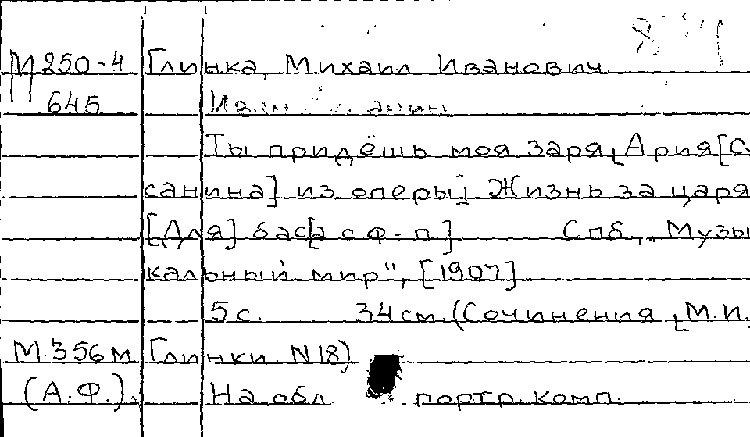 М 250-4 Глинка, Михаил Иванович
645
Ты придёшь моя заря, Ария [Су
санина] из оперы Жизнь за царя
[Для] баса [с ф-п] Спб., Музы
кальный мир", [1907]
5 с. 34 см. (Сочинения М.И.
М 356 м Глинки N 18)
(А.Ф.). На обл портр. комп.